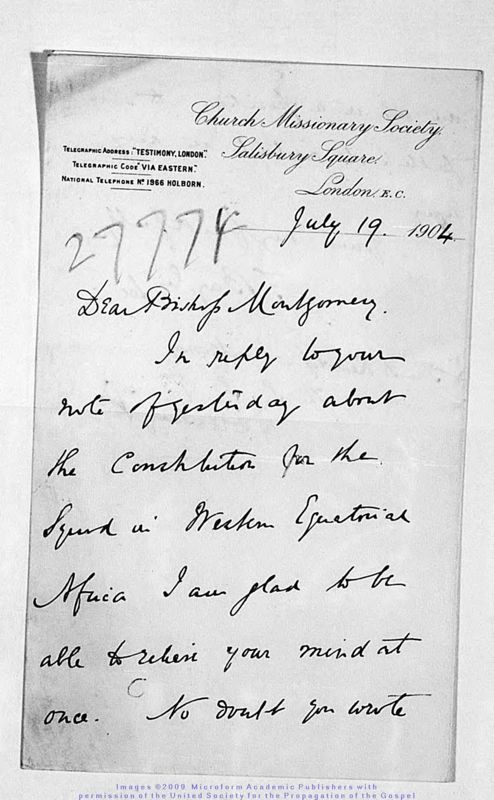 Church Missionary Society.
Salisbury Square.
London, E.C.
TELEGRAPHIC ADDRESS: "TESTIMONY, LONDON."
TELEGRAPHIC CODE "VIA EASTERN."
NATIONAL TELEPHONE No 1966 HOLBORN.
27774
July 19. 1904.
Dear Bishop Montgomery.
In reply to your
note of yesterday about
the Constitution for the
Synod in Western Equatorial
Africa I am glad to be
able to relieve your mind at
once. No doubt you wrote
Images ©2009 Microform Academic Publishers with
permission of the United Society for the Propagation of the Gospel